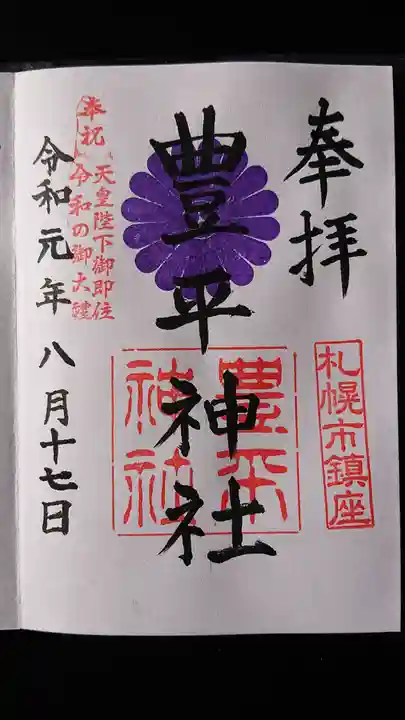 奉拝
札幌市鎮座
豊平神社
豊平
神社
奉祝
天皇陛下御即位
令和の御大禮
令和元年八月十七日